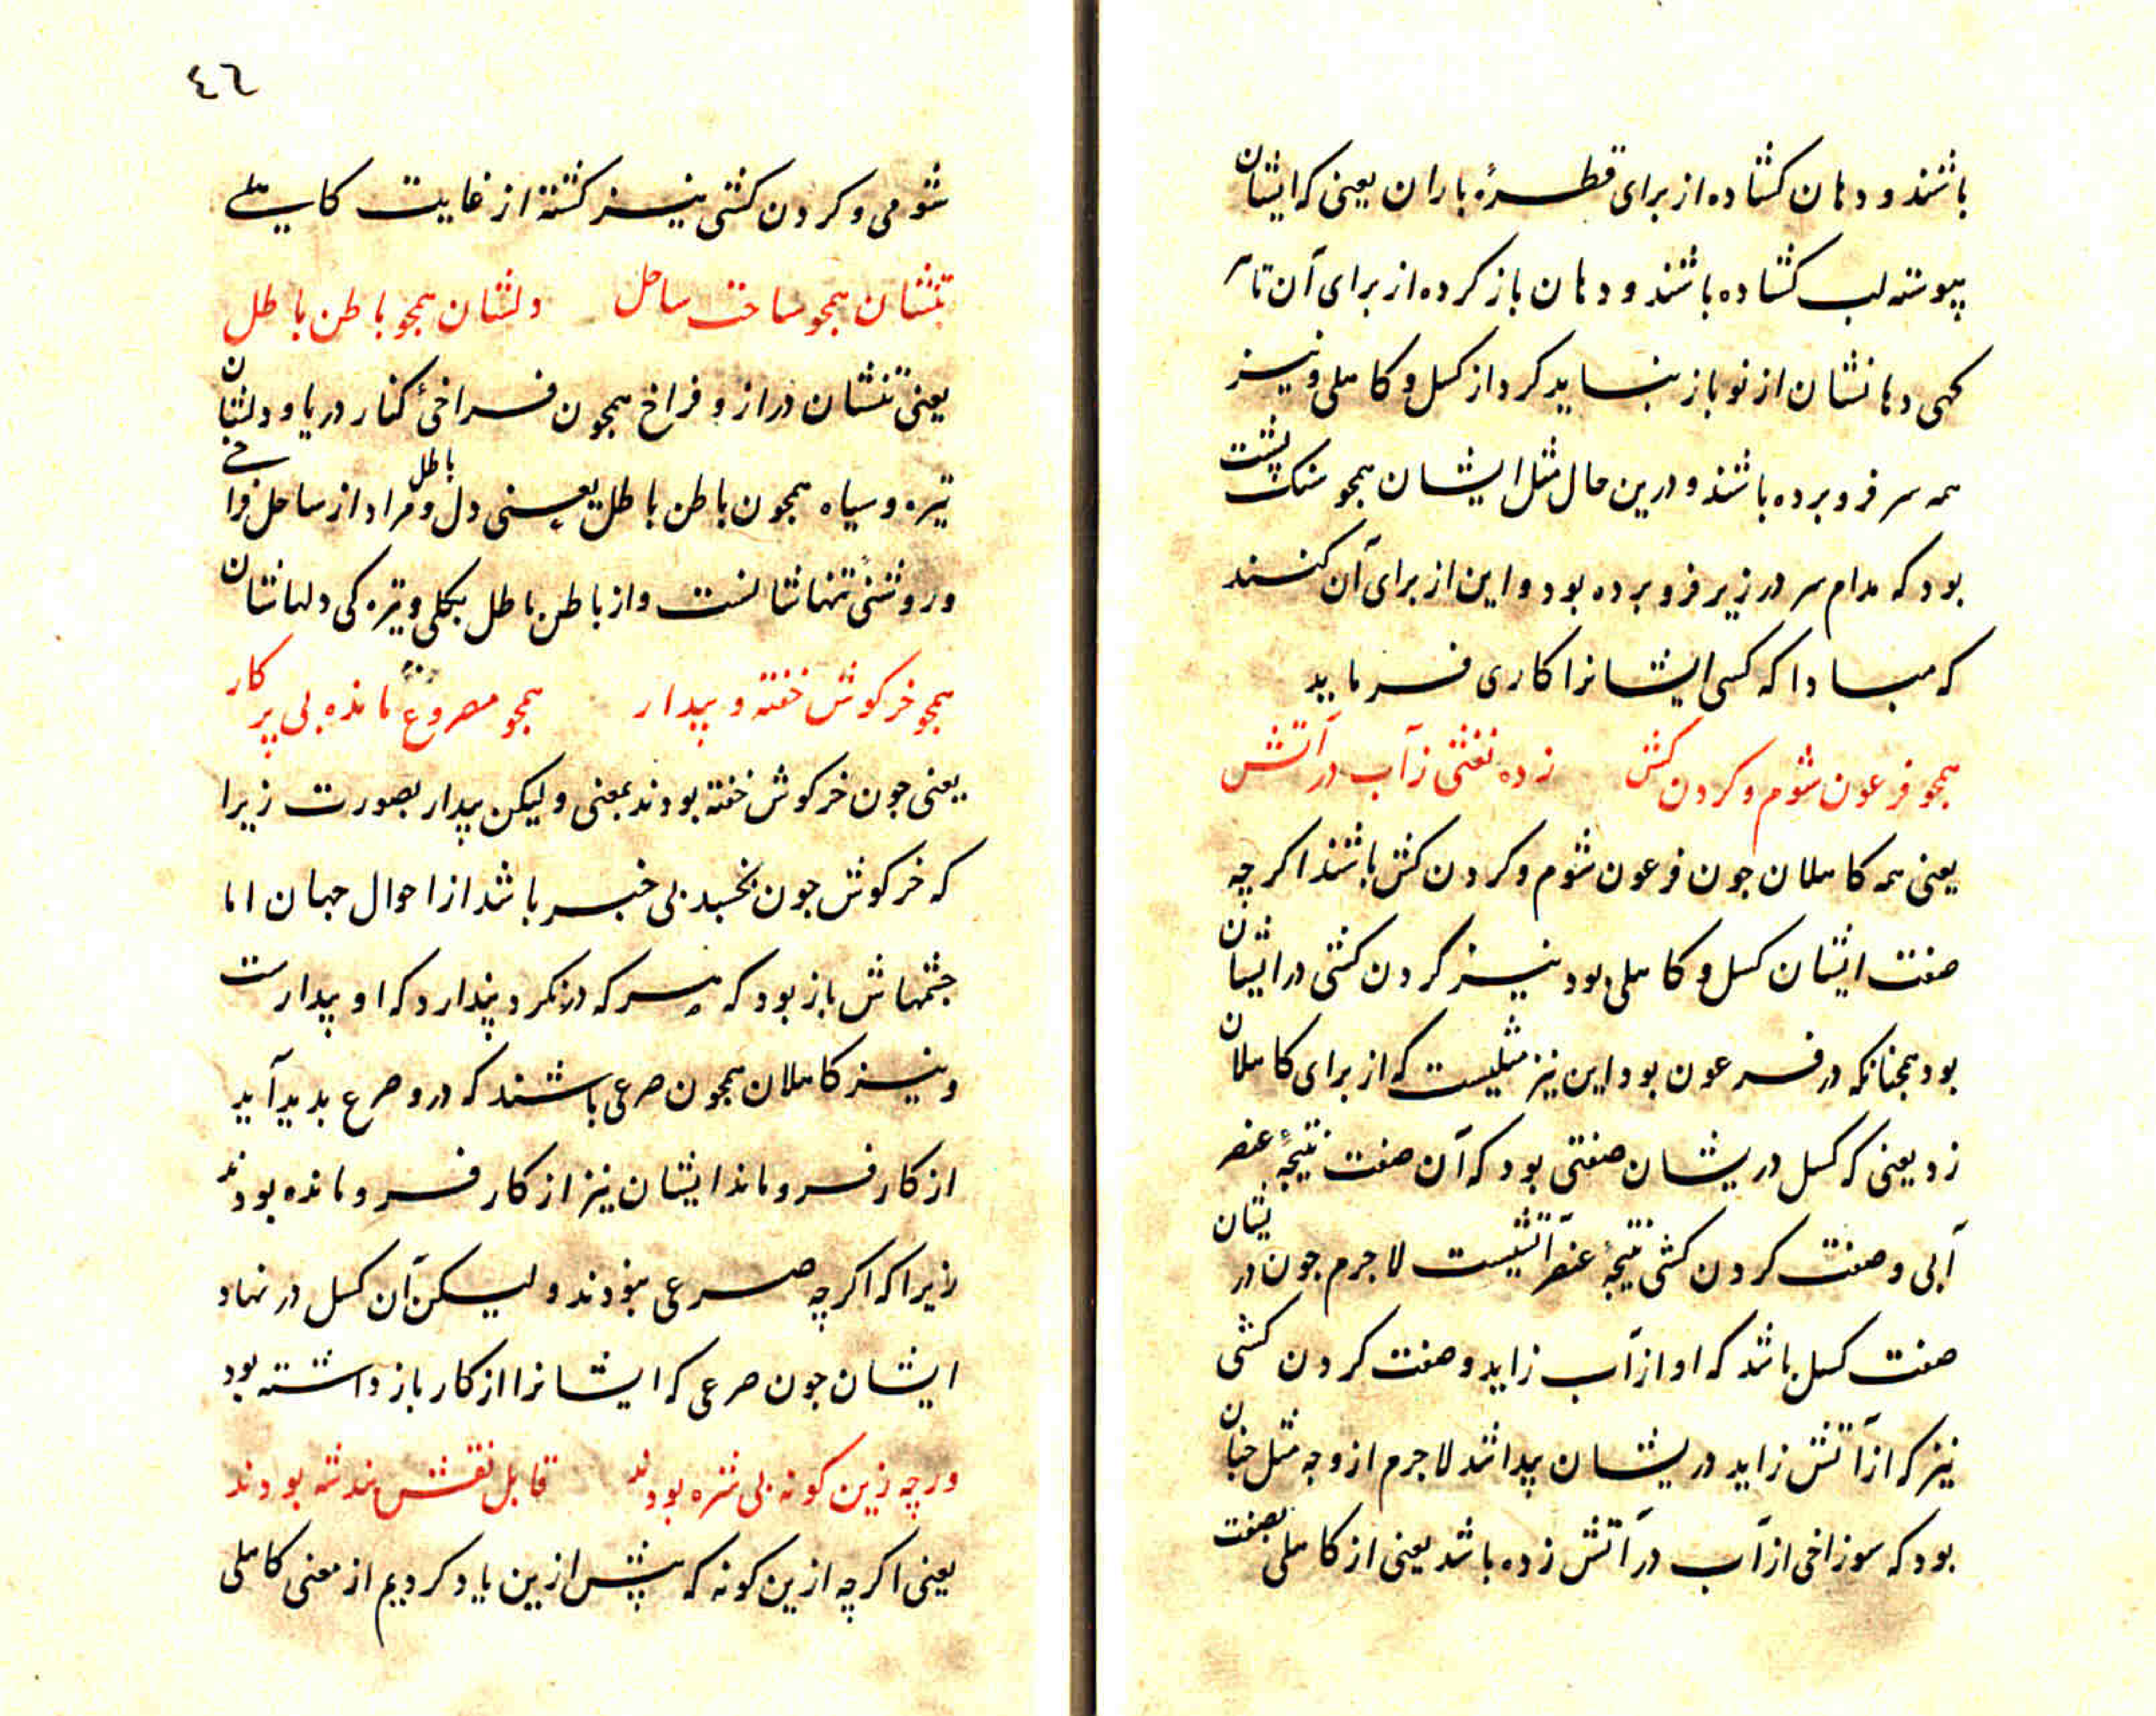 باشند و دهان کشاده از برای قطرهٔ باران یعنی که ایشان
پیوسته لب کشاده باشند و دهان باز کرده از برای آن تا
کهی دهانشان از نو باز نباید کرد از کسل و کاهلی و نیز
همه سر فرو برده باشند و درین حال مثل ایشان همجو سنک پشت
بود که مدام سر در زیر فرو برده بود و این از برای آن کنند
که مبادا که کسی ایشانرا کاری فرماید
همجو فرعون شوم و کردن کش    زده نقشی ز آب در آتش
یعنی همه کاهلان جون فرعون شوم و کردن کش باشند اکرچه
صفت ایشان کسل و کاهلی بود نیز کردن کشی در ایشان
بود همجنانکه در فرعون بود این نیز مثلیست که از برای کاهلان
زد یعنی که کسل دریشان صفتی بود که آن صفت نتیجهٔ عنصر
آبی و صفت کردن کشی نتیجهٔ عنصر آتشیست لاجرم جون دریشان
صفت کسل باشد که او از آب زاید و صفت کردن کشی
نیز که از آتش زاید دریشان پیدا شد لاجرم از وجه مثل جنان
بود که سوراخی از آب در آتش زده باشد یعنی از کاهلی بصفت
٤٦
شومی و کردن کشی نیز کشته از غایت کاهلی
تنشان همجو ساحت ساحل    دلشان همجو باطن باطل
یعنی تنشان دراز و فراخ همجون فراخئ کنار دریا و دلشان
تیره و سیاه همجون باطن باطل یعنی دل باطل و مراد از ساحل فراخی
و روشنئ تنهاشانست و از باطن باطل بکلی و تیره کی دلهاشان
همجو خرکوش خفته و بیدار    همجو مصروع مانده بی پرکار
یعنی جون خرکوش خفته بودند بمعنی و لیکن بیدار بصورت زیرا
که خرکوش جون بخسبد بی خبر باشد از احوال جهان اما
جشمهاش باز بود که هر که درنکرد پندارد که او بیدارست
و نیز کاهلان همجون صرعی باشند که درو صرع بدید آید
از کار فرو ماند ایشان نیز از کار فرو مانده بودند
زیرا که اکرچه صرعی نبودند و لیکن آن کسل در نهاد
ایشان جون صرعی که ایشانرا از کار باز داشته بود
ورچه زین کونه بی شره بودند    قابل نقش بدشه بودند
یعنی اکرچه ازین کونه که پیش ازین یاد کردیم از معنی کاهلی